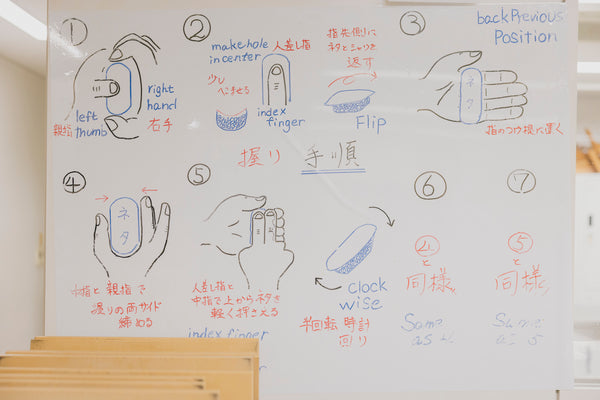 ①
left
thumb
親指
right
hand
右手
②
make hole
in center
人差し指
少し
へこませる
index
finger
指先側に
ネタとシャリを
返す
Flip
③
back Previous
Position
ネタ
指のつけ根に置く
握り 手順
④
ネタ
中指と親指で
握りの両サイド
締める
⑤
人差し指と
中指で上からネタを
軽く押さえる
index finger
clock
wise
半回転 時計
回り
⑥
④
と
同様
Same
as 4
⑦
⑤
と
同様
Same
as 5